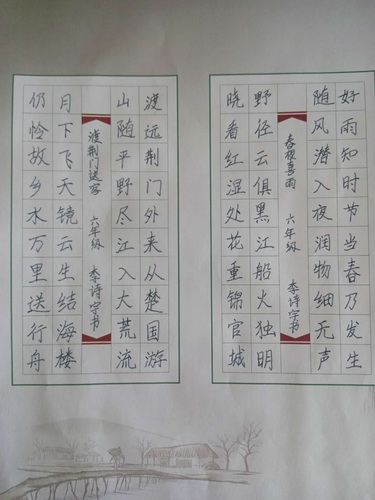 好雨知时节当春乃发生
随风潜入夜润物细无声
春夜喜雨 六年级 李诗宇书
野径云俱黑江船火独明
晓看红湿处花重锦官城
渡远荆门外来从楚国游
山随平野尽江入大荒流
渡荆门送客 六年级 李诗宇书
月下飞天镜云生结海楼
仍怜故乡水万里送行舟